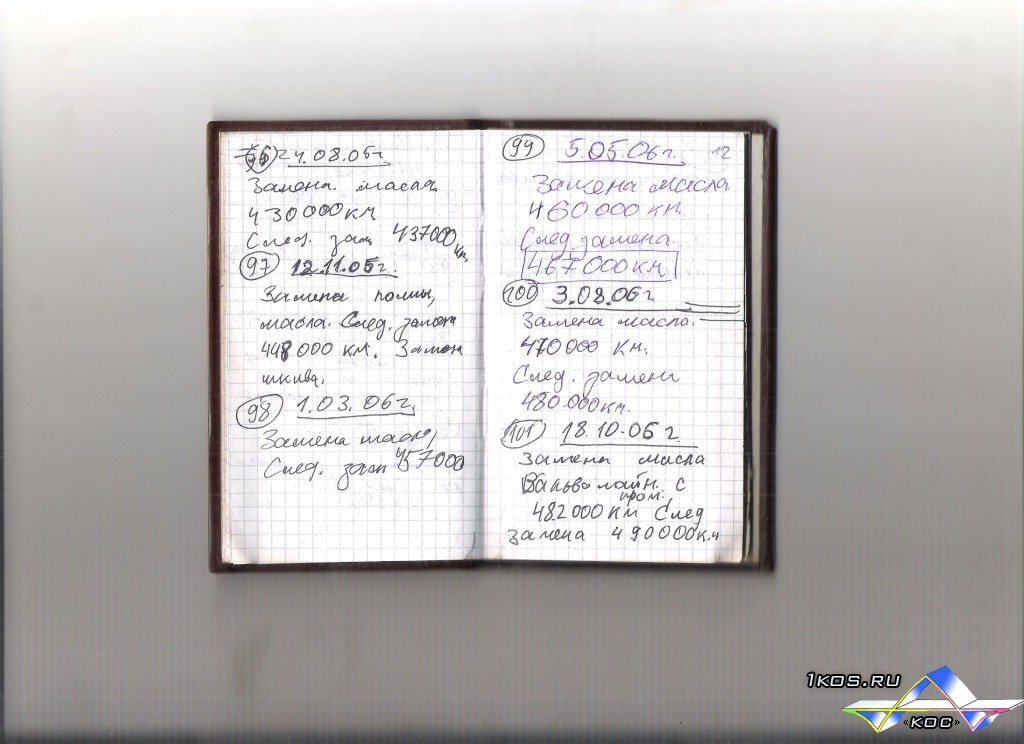 96 24.08.05г.
Замена масла
430000км
След. зам 437000 км.
97 12.11.05г.
Замена помпы,
масла. След. замена
448000 км. Замена
шкива.
98 1.03.06г.
Замена масла,
След. зам 457000
99 5.05.06г. 12
Замена масла
460000 км.
След замена
467000км
100 3.08.06г
Замена масла.
470000 км.
След. замена
480.000км.
101 18.10.06г.
Замена масла
Вальволайн. с
пром.
482000км След
замена 490000км
1KOS.RU
«КОС»